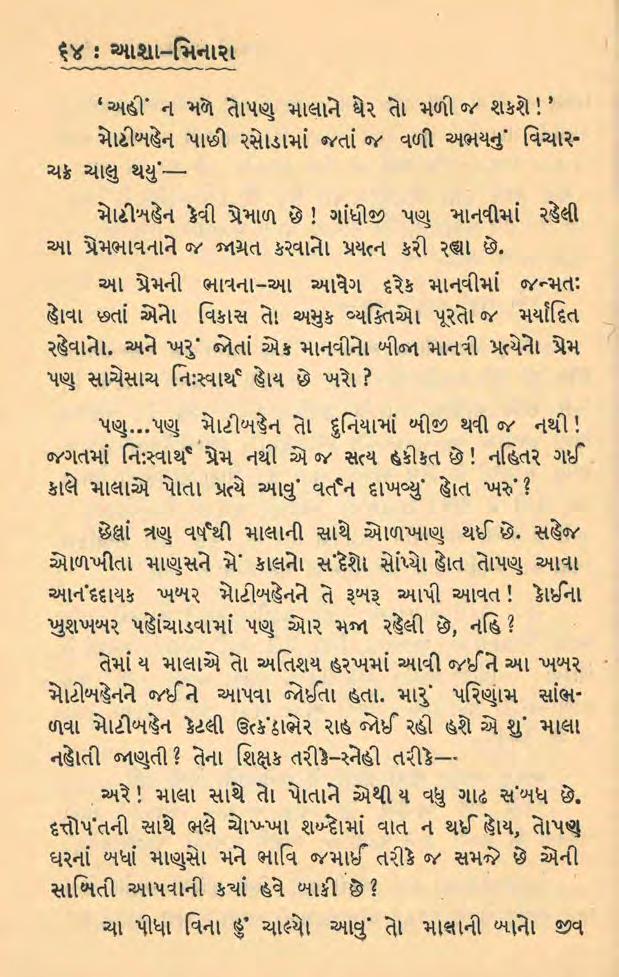 ૬૪ : આશા-મિનારા
‘અહીં ન મળે તોપણ માલાને ઘેર તો મળી જ શકશે!’
મોટીબહેન પાછી રસોડામાં જતાં જ વળી અભયનું વિચાર-
ચક્ર ચાલુ થયું—
મોટીબહેન કેવી પ્રેમાળ છે! ગાંધીજી પણ માનવીમાં રહેલી
આ પ્રેમભાવનાને જ જાગ્રત કરવાનો પ્રયત્ન કરી રહ્યા છે.
આ પ્રેમની ભાવના-આ આવેગ દરેક માનવીમાં જન્મતઃ
હોવા છતાં એનો વિકાસ તો અમુક વ્યક્તિઓ પૂરતો જ મર્યાદિત
રહેવાનો. અને ખરું જોતાં એક માનવીનો બીજા માનવી પ્રત્યેનો પ્રેમ
પણ સાચેસાચ નિઃસ્વાર્થ હોય છે ખરો?
પણ...પણ મોટીબહેન તો દુનિયામાં બીજી થવી જ નથી!
જગતમાં નિઃસ્વાર્થ પ્રેમ નથી એ જ સત્ય હકીકત છે! નહિતર ગઈ
કાલે માલાએ પોતા પ્રત્યે આવું વર્તન દાખવ્યું હોત ખરું?
છેલ્લાં ત્રણ વર્ષથી માલાની સાથે ઓળખાણ થઈ છે. સહેજ
ઓળખીતા માણસને મેં કાલનો સંદેશો સોંપ્યો હોત તોપણ આવા
આનંદદાયક ખબર મોટીબહેનને તે રૂબરૂ આપી આવત! કોઈના
ખુશખબર પહોંચાડવામાં પણ ઓર મજા રહેલી છે, નહિ?
તેમાં ય માલાએ તો અતિશય હરખમાં આવી જઈને આ ખબર
મોટીબહેનને જઈને આપવા જોઈતા હતા. મારું પરિણામ સાંભ-
ળવા મોટીબહેન કેટલી ઉત્કંઠાભેર રાહ જોઈ રહી હશે એ શું માલા
નહોતી જાણતી? તેના શિક્ષક તરીકે-સ્નેહી તરીકે—
અરે! માલા સાથે તો પોતાને એથી ય વધુ ગાઢ સંબધ છે.
દત્તોપંતની સાથે ભલે ચોખ્ખા શબ્દોમાં વાત ન થઈ હોય, તોપણ
ઘરનાં બધાં માણસો મને ભાવિ જમાઈ તરીકે જ સમજે છે એની
સાબિતી આપવાની ક્યાં હવે બાકી છે?
ચા પીધા વિના હું ચાલ્યો આવું તો માલાની બાનો જીવ